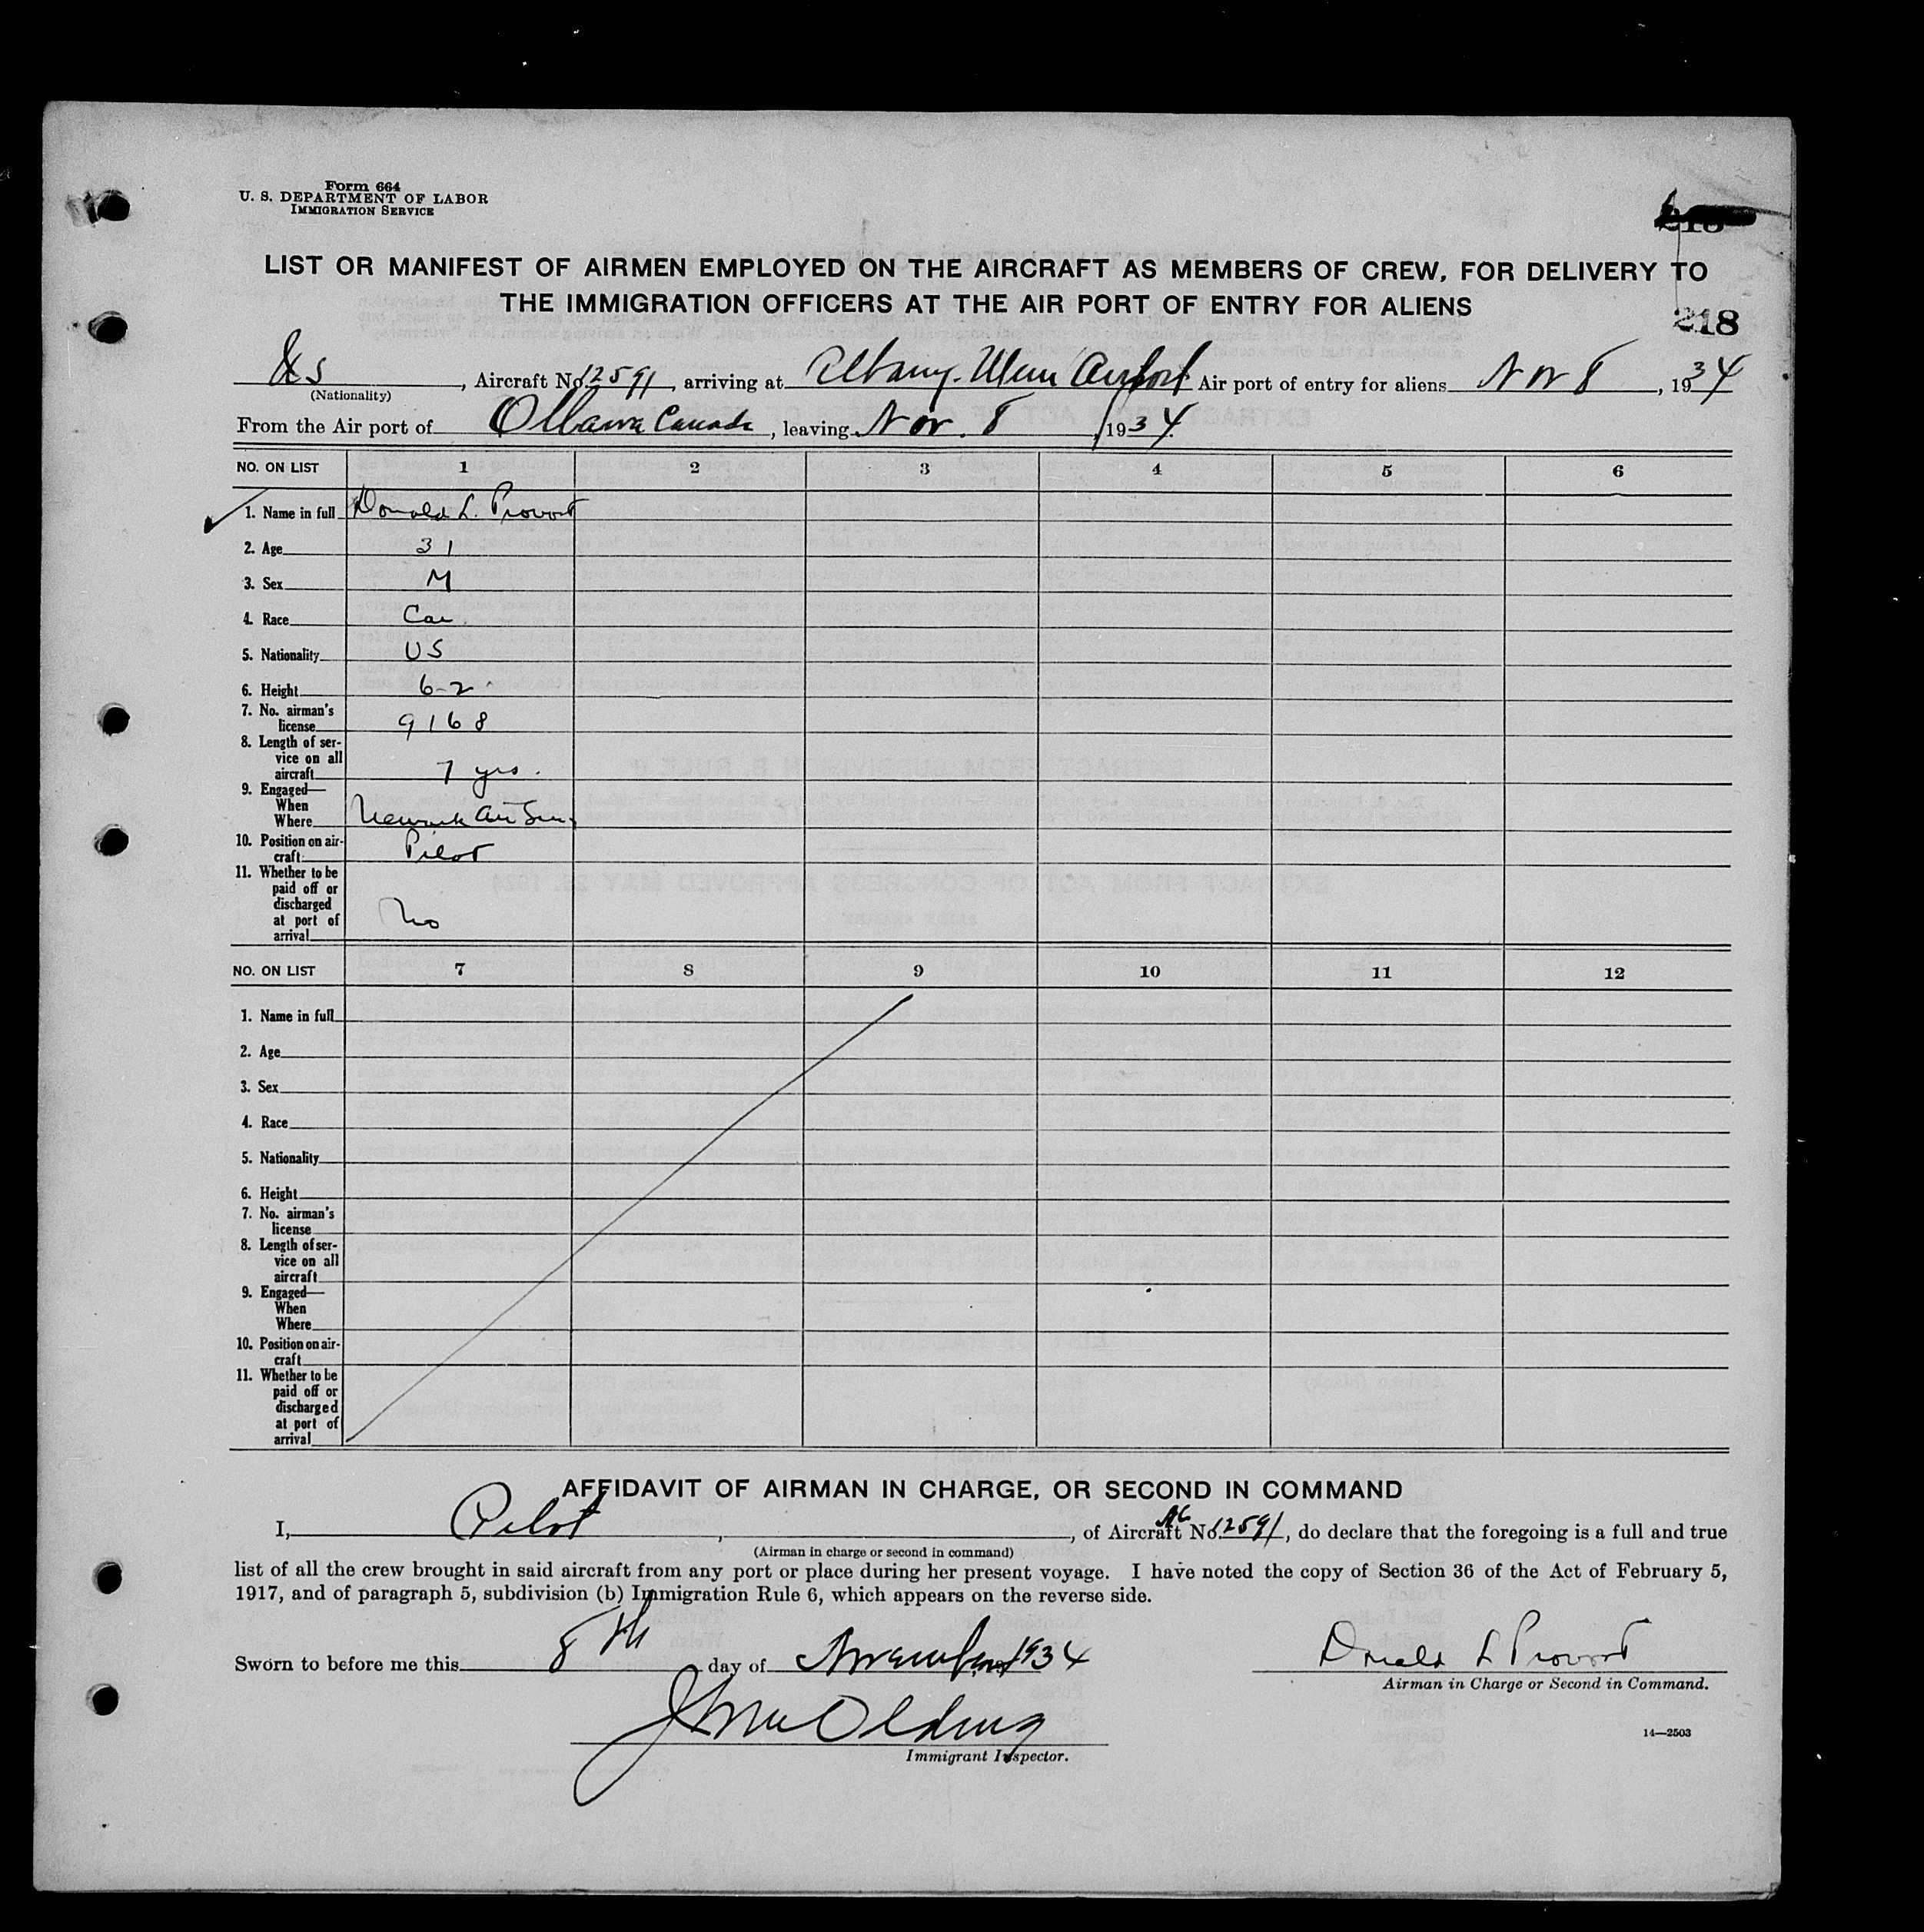 Form 664
U. S. DEPARTMENT OF LABOR
IMMIGRATION SERVICE
218
LIST OR MANIFEST OF AIRMEN EMPLOYED ON THE AIRCRAFT AS MEMBERS OF CREW, FOR DELIVERY TO
THE IMMIGRATION OFFICERS AT THE AIR PORT OF ENTRY FOR ALIENS
218
US, Aircraft No. 12591, arriving at Albany. Mun Airport Air port of entry for aliens Nov 8, 1934
(Nationality)
From the Air port of Ottawa Canada, leaving Nov. 8, 1934
NO. ON LIST 1 2 3 4 5 6
1. Name in full Donald L. Provost
2. Age 31
3. Sex M
4. Race Cau.
5. Nationality US
6. Height 6-2
7. No. airman's
license 9168
8. Length of ser-
vice on all
aircraft 7 yrs.
9. Engaged—
When
Where Newark Air
10. Position on air-
craft Pilot
11. Whether to be
paid off or
discharged
at port of
arrival No
NO. ON LIST 7 8 9 10 11 12
1. Name in full
2. Age
3. Sex
4. Race
5. Nationality
6. Height
7. No. airman's
license
8. Length of ser-
vice on all
aircraft
9. Engaged—
When
Where
10. Position on air-
craft
11. Whether to be
paid off or
discharged
at port of
arrival
AFFIDAVIT OF AIRMAN IN CHARGE, OR SECOND IN COMMAND
I, Pilot, , of Aircraft No. NC 12591, do declare that the foregoing is a full and true
(Airman in charge or second in command)
list of all the crew brought in said aircraft from any port or place during her present voyage. I have noted the copy of Section 36 of the Act of February 5,
1917, and of paragraph 5, subdivision (b) Immigration Rule 6, which appears on the reverse side.
Sworn to before me this 8th day of November 1934
Donald L Provost
Airman in Charge or Second in Command.
Immigrant Inspector.
14—2503